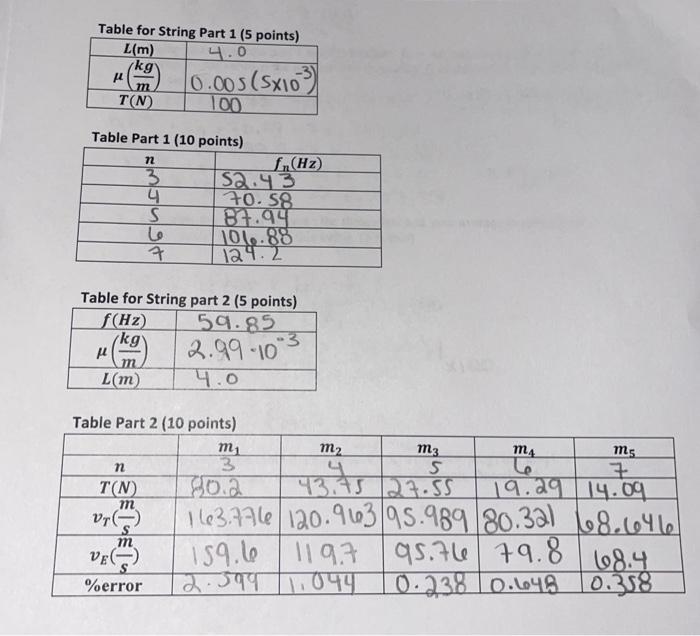 Table for String Part 1 (5 points)
L(m) 4.0
μ(kg/m) 0.005 (5x10⁻³)
T(N) 100
Table Part 1 (10 points)
n fₙ(Hz)
3 52.43
4 70.58
5 87.94
6 106.88
7 124.2
Table for String part 2 (5 points)
f(Hz) 59.85
μ(kg/m) 2.99·10⁻³
L(m) 4.0
Table Part 2 (10 points)
m₁ m₂ m₃ m₄ m₅
n 3 4 5 6 7
T(N) 80.2 43.75 27.55 19.29 14.09
v_T(m/s) 163.776 120.963 95.989 80.321 68.646
v_E(m/s) 159.6 119.7 95.76 79.8 68.4
%error 2.599 1.044 0.238 0.648 0.358